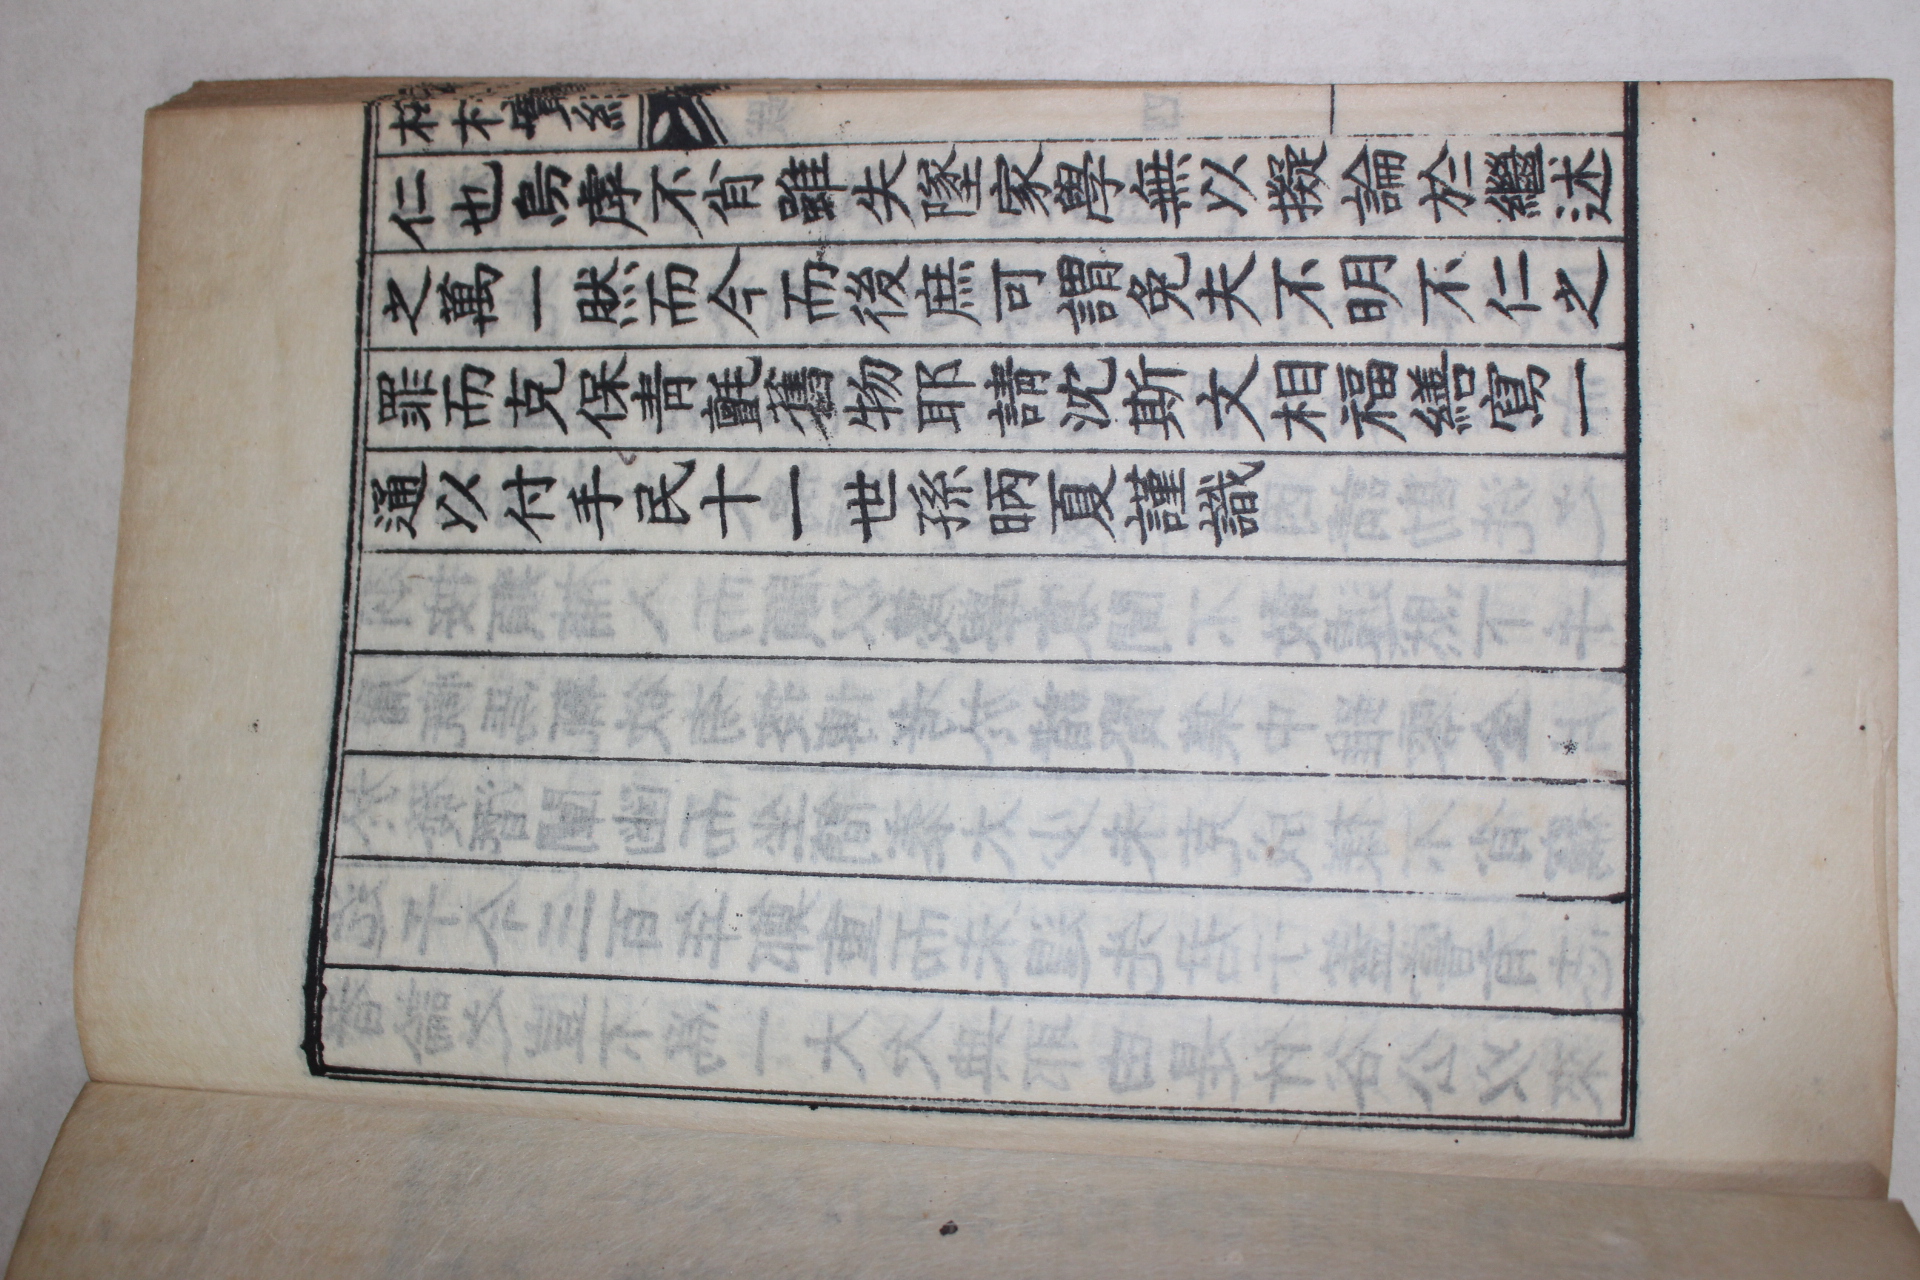 村實紀
仁也烏虖不肖雖失墜家學無以擬論於繼述
之萬一然而今而後庶可謂免夫不明不仁之
罪而克保靑氈舊物耶請沈斯文相福繕寫一
通以付手民十一世孫昞夏謹識